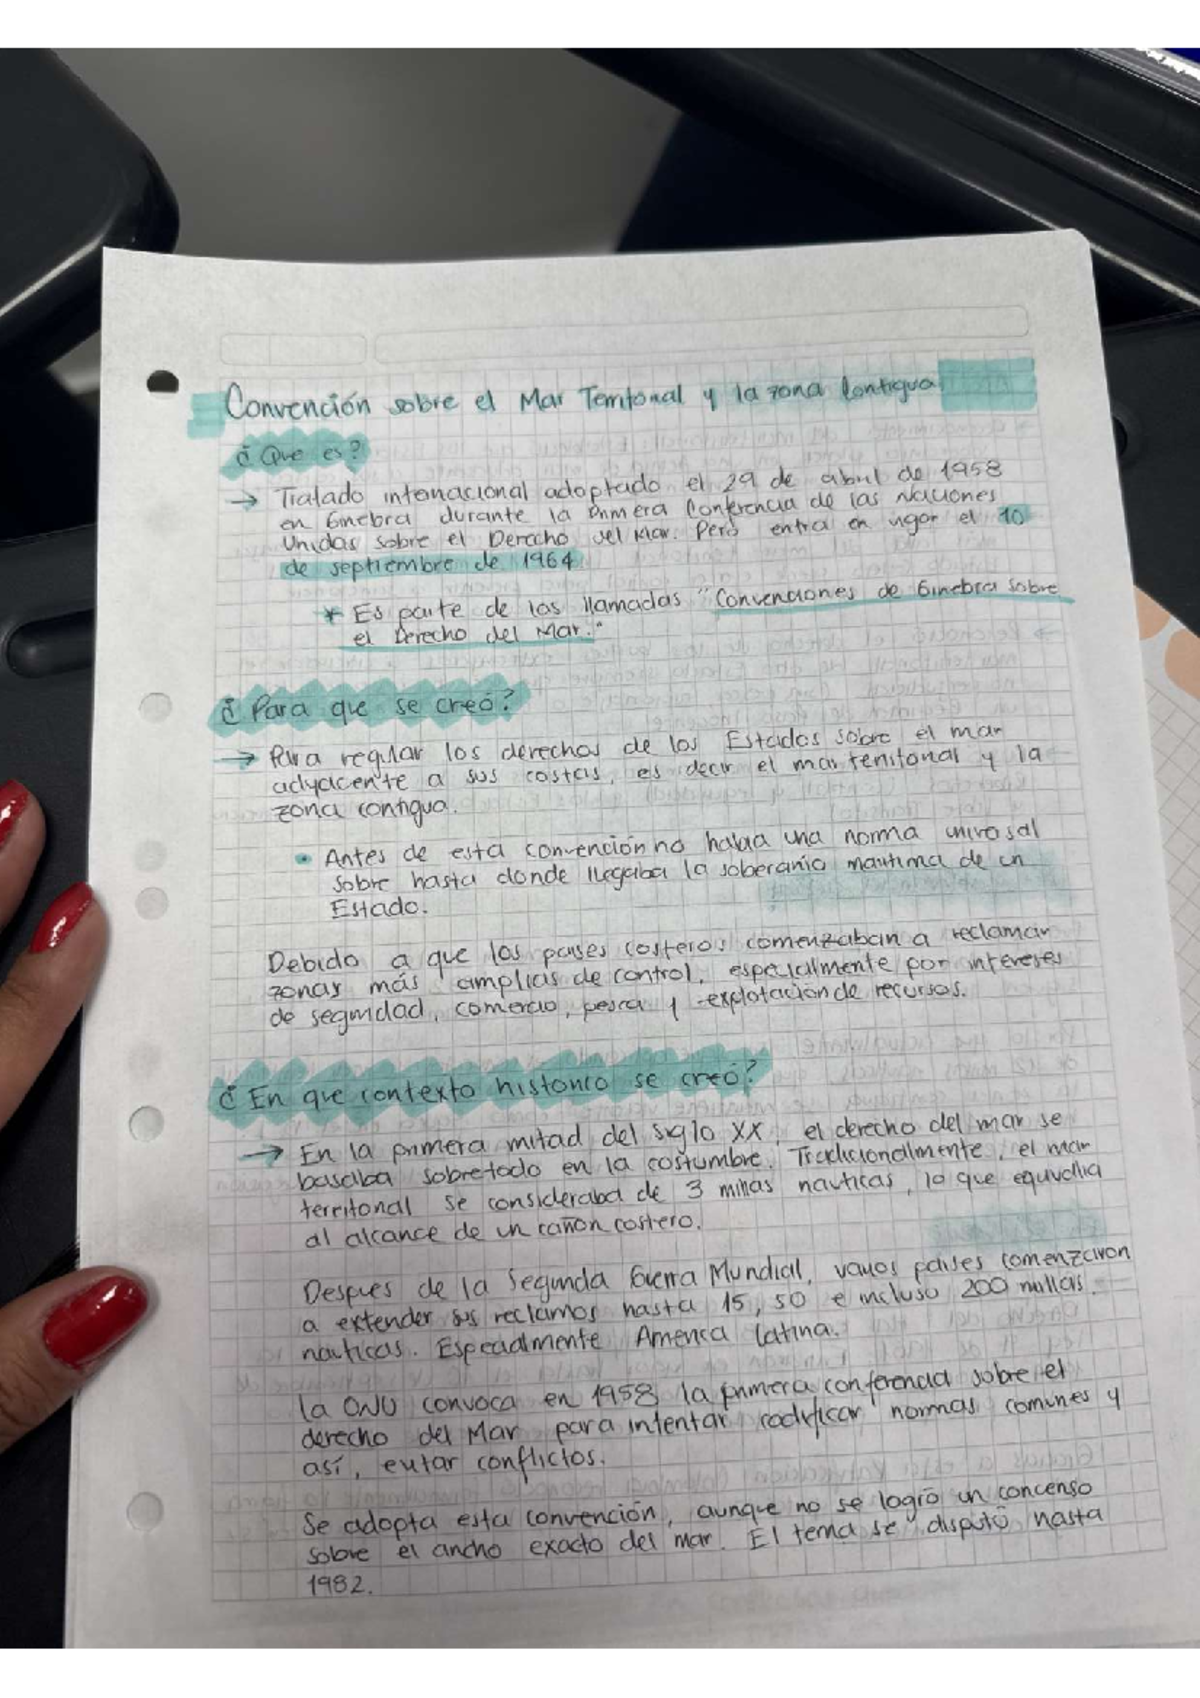 Convención sobre el Mar Territorial y la zona Contigua
¿Que es?
→ Tratado internacional adoptado el 29 de abril de 1958
en Ginebra durante la Primera Conferencia de las Naciones
Unidas sobre el Derecho del Mar. Pero entra en vigor el 10
de septiembre de 1964
* Es parte de las llamadas "Convenciones de Ginebra sobre
el Derecho del Mar."
¿Para que se creó?
→ Para regular los derechos de los Estados sobre el mar
adyacente a sus costas, es decir el mar territorial y la
zona contigua.
• Antes de esta convención no habia una norma universal
sobre hasta donde llegaba la soberania maritima de un
Estado.
Debido a que los paises costeros comenzaban a reclamar
zonas más amplias de control, especialmente por intereses
de seguridad, comercio, pesca y explotación de recursos.
¿En que contexto historico se creó?
→ En la primera mitad del siglo XX, el derecho del mar se
basaba sobretodo en la costumbre. Tradicionalmente, el mar
territorial se consideraba de 3 millas nauticas, lo que equivalia
al alcance de un cañon costero.
Despues de la Segunda Guerra Mundial, varios paises comenzaron
a extender sus reclamos hasta 15, 50 e incluso 200 millas
nauticas. Especialmente America Latina.
La ONU convoca en 1958 la primera conferencia sobre el
derecho del Mar para intentar codificar normas comunes y
así, evitar conflictos.
Se adopta esta convención, aunque no se logró un concenso
sobre el ancho exacto del mar. El tema se disputó hasta
1982.